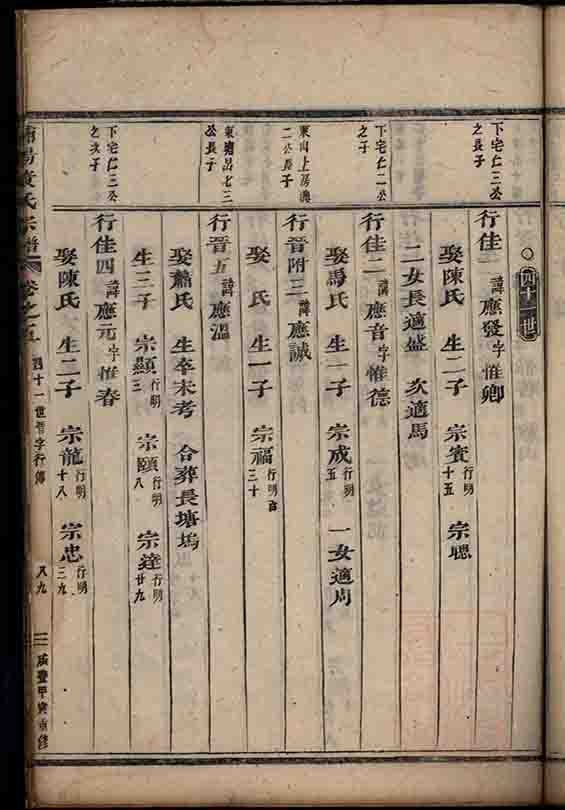 四十一世
下宅仁三公
之長子
行佳一諱應發字惟卿
娶陳氏 生二子 宗賓行明十五 宗聰
二女長適盛 次適馬
下宅仁二公
之子
行佳二諱應音字惟德
娶馬氏 生一子 宗成行明五 一女適周
二公長子
行晉附三諱應誠
娶 氏 生一子 宗福行明三十
公長子
行晉五諱應溫
娶蕭氏 生卒未考 合葬長塘塢
生三子 宗顯行明三 宗頤行明八 宗達行明廿九
下宅仁三公
之次子
行佳四諱應元字惟春
娶陳氏 生二子 宗龍行明十八 宗忠行明三九
黃氏宗譜 卷之五 四十一世晉字行傳 咸豐甲寅重修